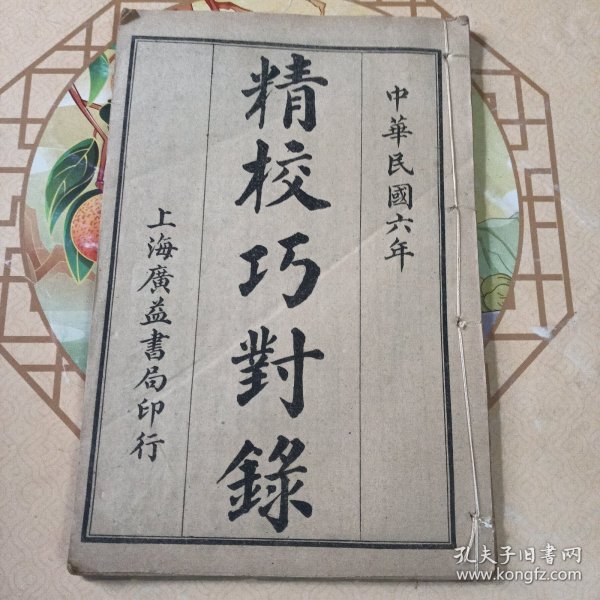 中華民國六年
精校巧對錄
上海廣益書局印行
孔夫子旧书网
www.kongfz.com